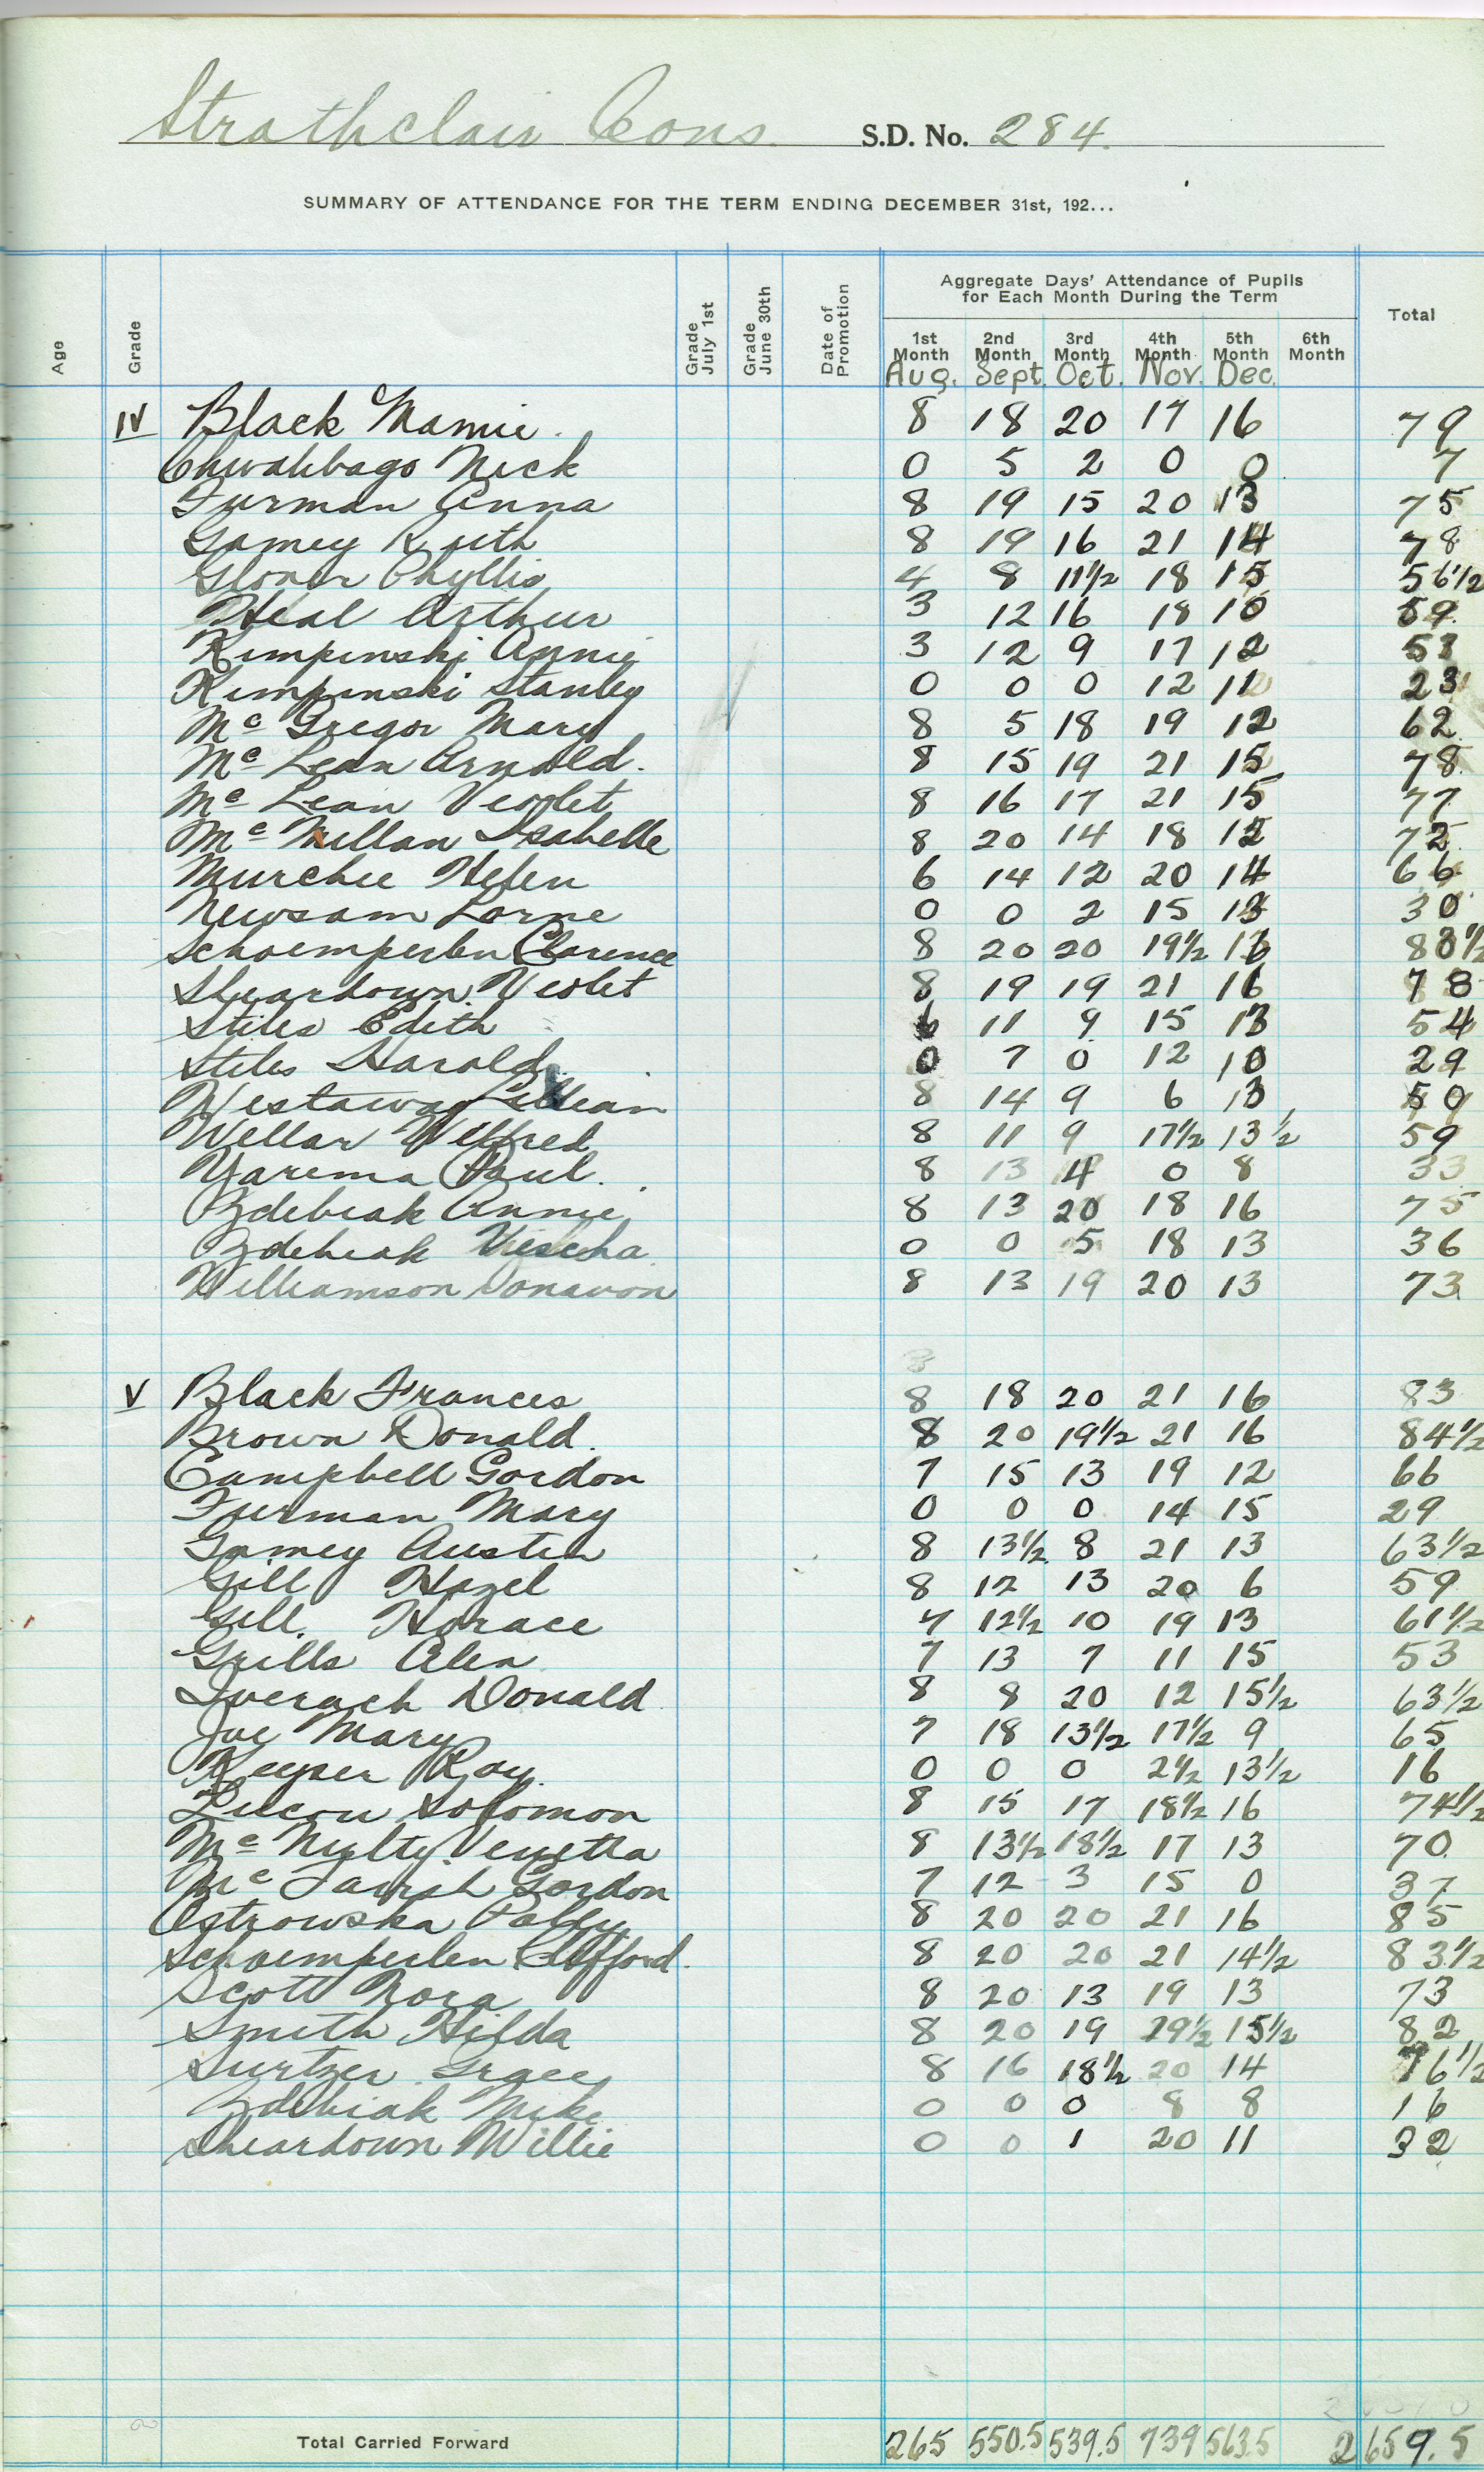 Strathclair Cons. S.D. No. 284.
SUMMARY OF ATTENDANCE FOR THE TERM ENDING DECEMBER 31st, 192...
Aggregate Days' Attendance of Pupils
for Each Month During the Term
Age Grade Grade July 1st Grade June 30th Date of Promotion 1st Month 2nd Month 3rd Month 4th Month 5th Month 6th Month Total
Aug. Sept. Oct. Nov. Dec.
IV Black Mamie. 8 18 20 17 16 79
Nick 0 5 2 0 0 7
Furman Anna 8 19 15 20 13 75
Gamey Ruth 8 19 16 21 14 78
Glover Phyllis 4 8 11½ 18 15 56½
Heal Arthur 3 12 16 18 10 59
Kimpinski Annie 3 12 9 17 12 53
Kimpinski Stanley 0 0 0 12 11 23
Mc Gregor Mary 8 5 18 19 12 62
Mc Lean Arnold. 8 15 19 21 15 78
Mc Lean Violet 8 16 17 21 15 77
Mc Millan Isabelle 8 20 14 18 12 72
Murchie Helen 6 14 12 20 14 66
Newsam Lorne 0 0 2 15 13 30
Schoemperlen Clarence 8 20 20 19½ 16 83½
Sheardown Violet 8 19 19 21 16 78
Stiles Edith 6 11 9 15 13 54
Stiles Harold 0 7 0 12 10 29
Westaway Lillian 8 14 9 6 13 50
Wellar Wilfred 8 11 9 17½ 13½ 59
Yarema Paul. 8 13 4 0 8 33
Zdebiak Annie 8 13 20 18 16 75
Zdebiak 0 0 5 18 13 36
Williamson Donavon 8 13 19 20 13 73
8
V Black Frances 8 18 20 21 16 83
Brown Donald. 8 20 19½ 21 16 84½
Campbell Gordon 7 15 13 19 12 66
Furman Mary 0 0 0 14 15 29
Gamey Austin 8 13½ 8 21 13 63½
Gill Hazel 8 12 13 20 6 59
Gill. Horace 7 12½ 10 19 13 61½
Grills Alex 7 13 7 11 15 53
Iverach Donald 8 8 20 12 15½ 63½
Joe Mary 7 18 13½ 17½ 9 65
Keyser Roy. 0 0 0 2½ 13½ 16
Lucow Solomon 8 15 17 18½ 16 74½
Mc Nulty Venetta 8 13½ 18½ 17 13 70
Mc Tavish Gordon 7 12 3 15 0 37
Ostrowska Polly 8 20 20 21 16 85
Schoemperlen Clifford. 8 20 20 21 14½ 83½
Scott Nora 8 20 13 19 13 73
Smith Hilda 8 20 19 19½ 15½ 82
Surtzer Grace 8 16 18½ 20 14 76½
Zdebiak Mike 0 0 0 8 8 16
Sheardown Willie 0 0 1 20 11 32
Total Carried Forward 265 550.5 539.5 739 563.5 2659.5